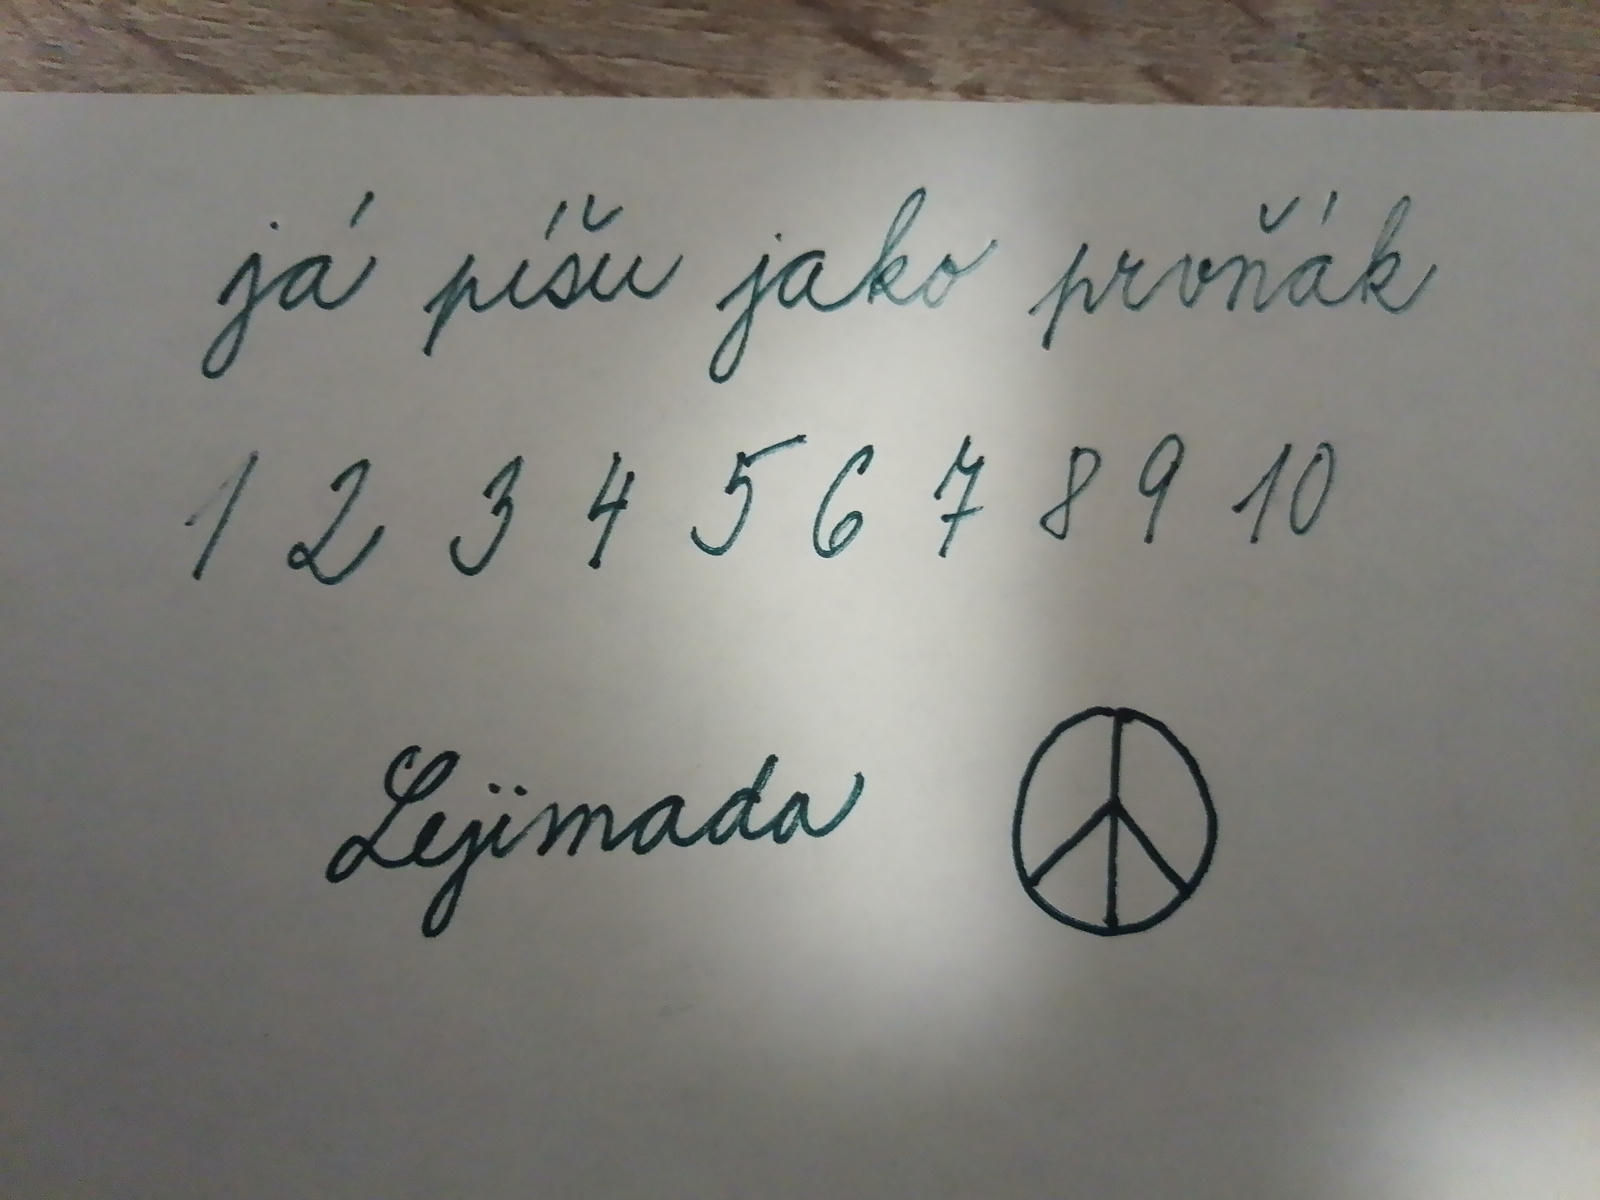 já píšu jako prvňák
1 2 3 4 5 6 7 8 9 10
Lejimada